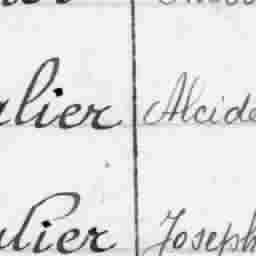 alier Alcide
ulier Joseph